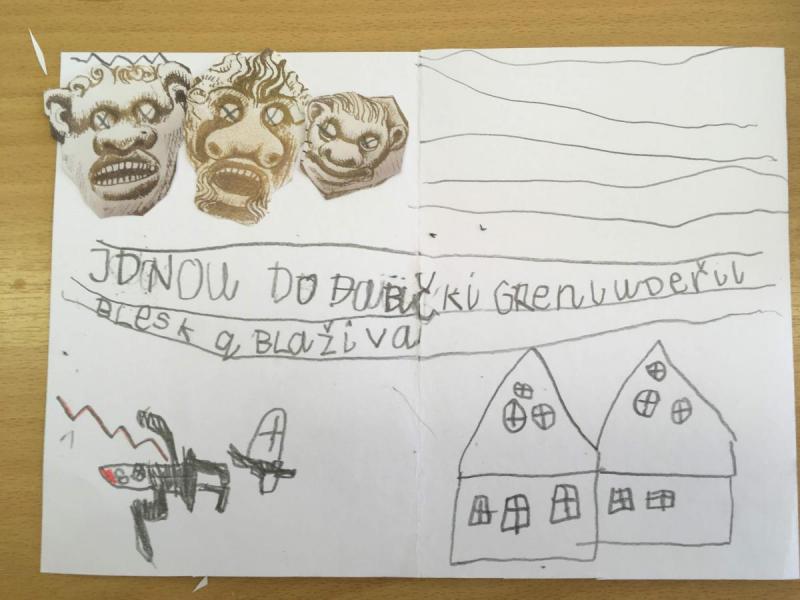 JDNOU DO BABIČKI GRENI UDEŘIL
BLESK a BLaŽiva